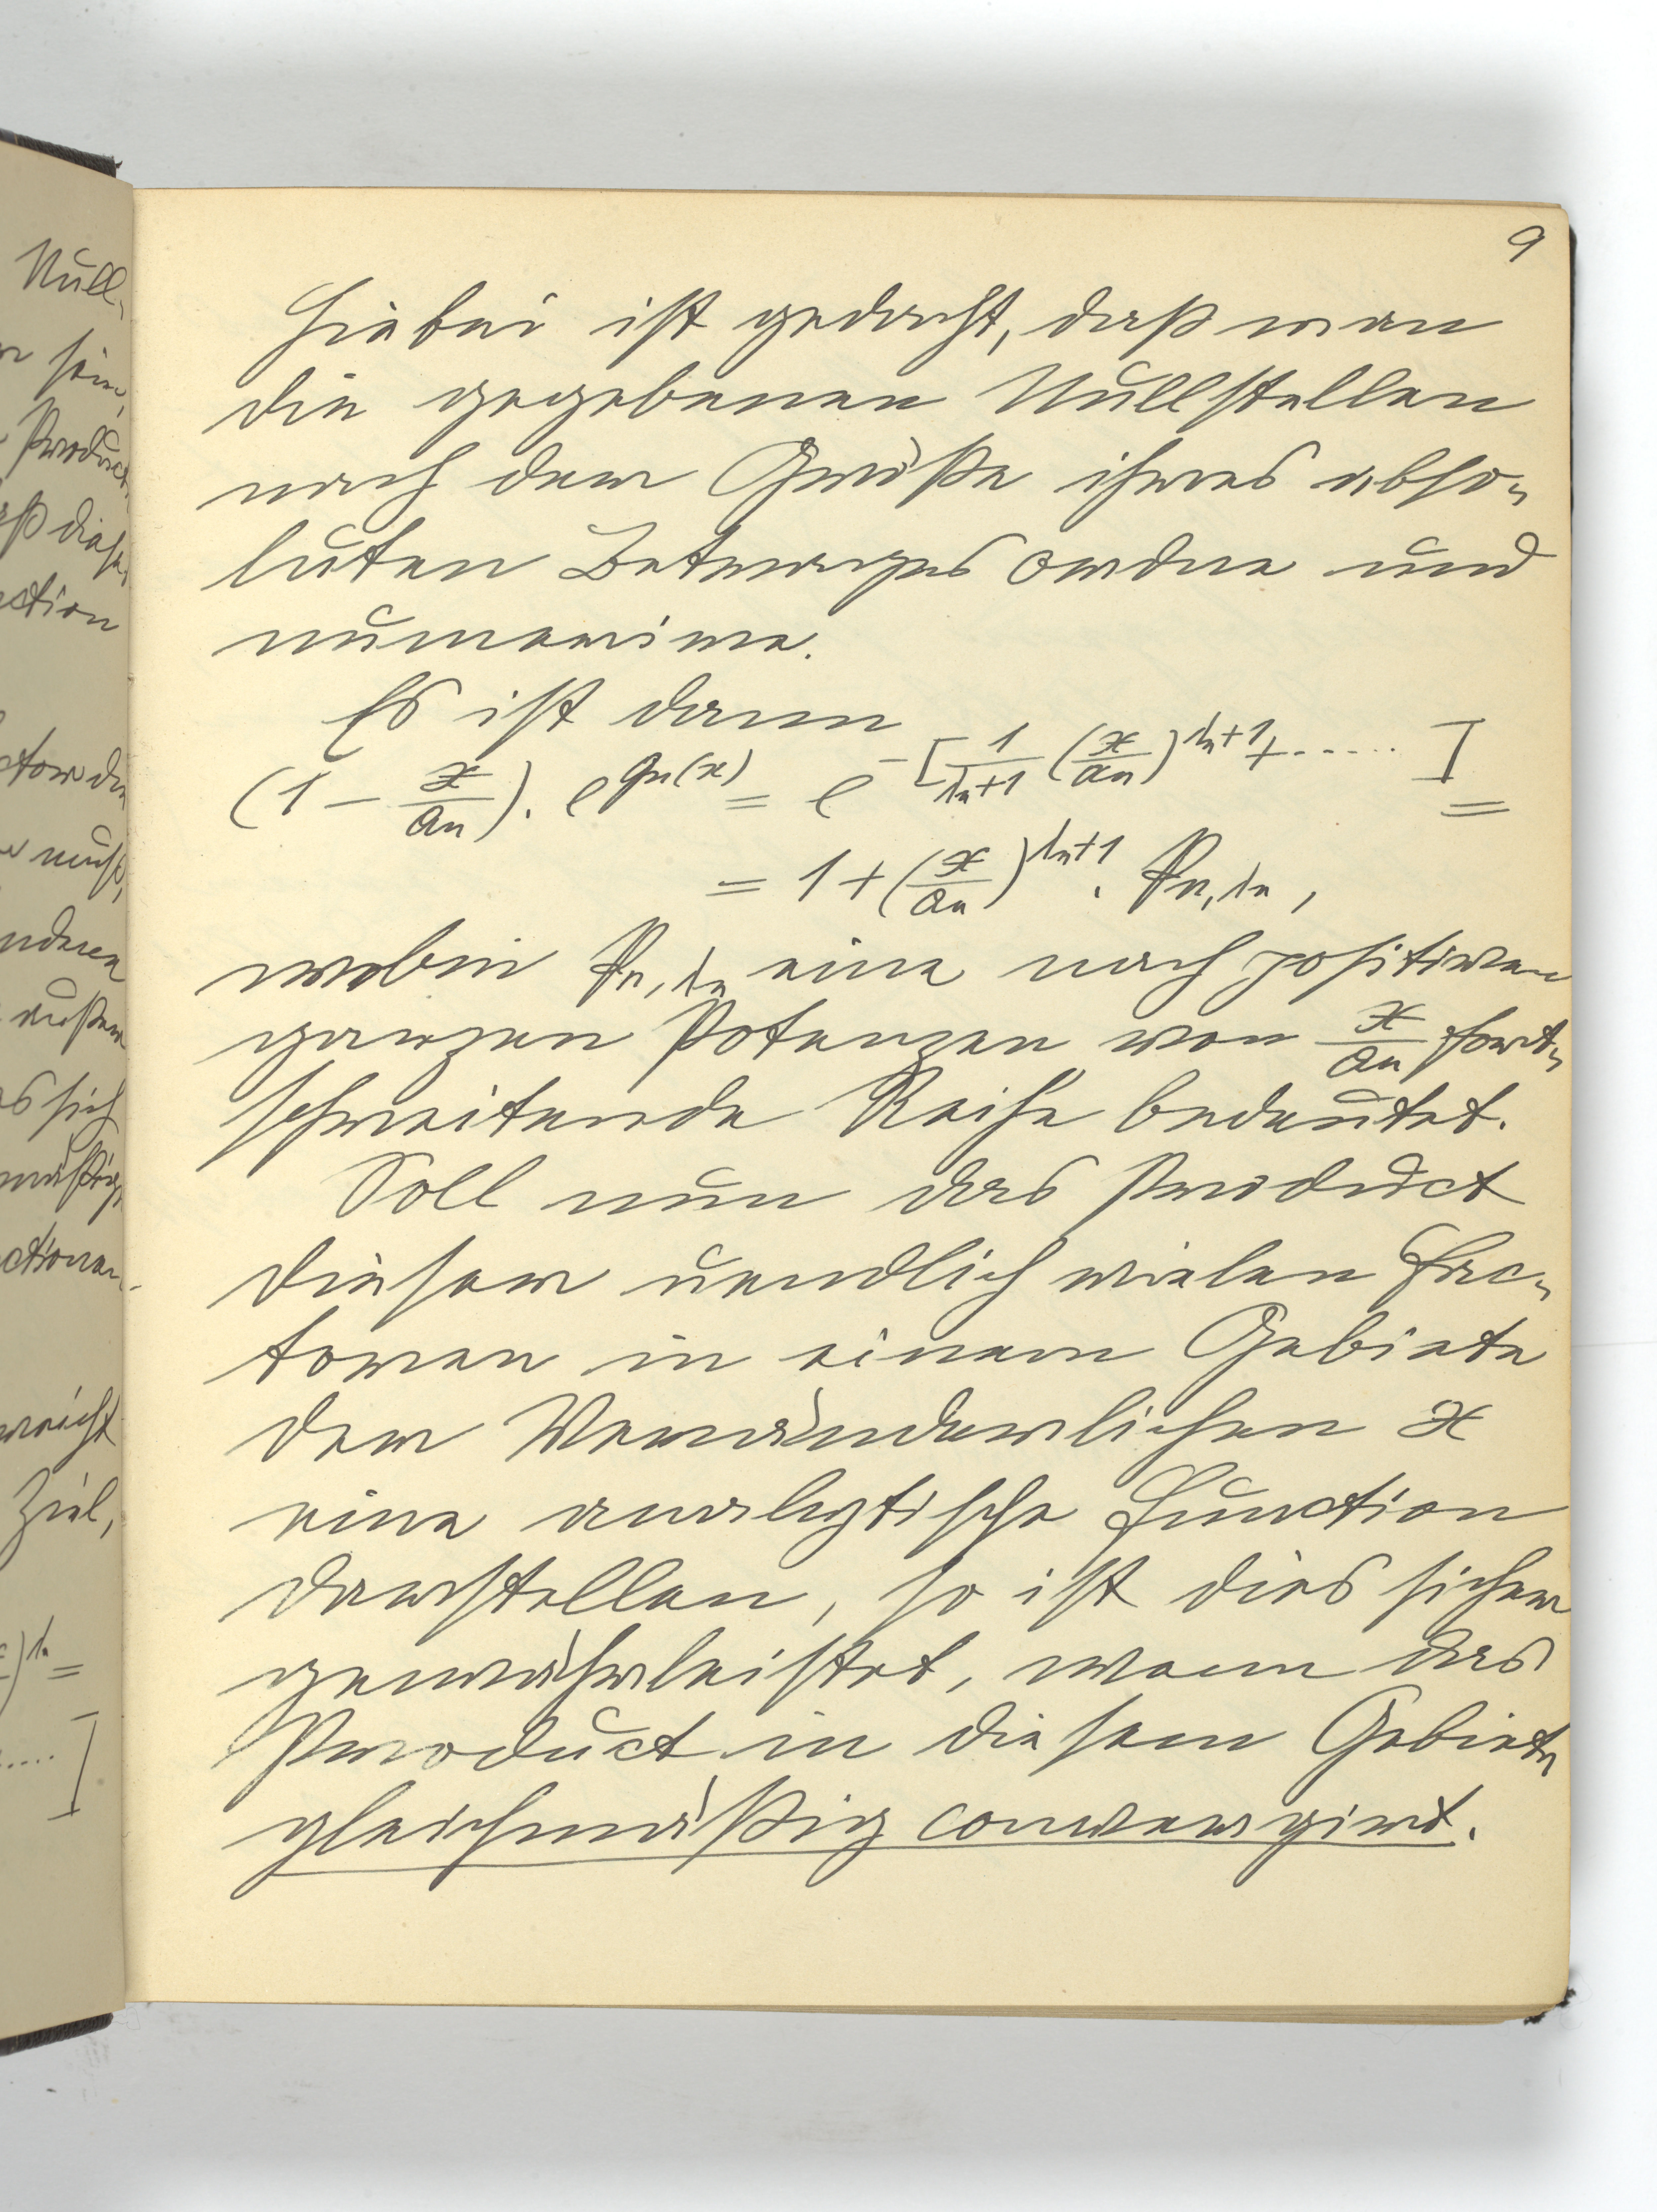 9
Hiebei ist gedacht, daß man
die gegebenen Nullstellen
nach der Größe ihres abso-
luten Betrages ordne und
numerire.
Es ist dann
(1 - x/an) · e^gn(x) = e^-[1/(λn+1) (x/an)^(λn+1) + ......] =
= 1 + (x/an)^(λn+1) · Pn,λn ,
wobei Pn,λn eine nach positiven
ganzen Potenzen von x/an fort-
schreitende Reihe bedeutet.
Soll nun das Product
dieser unendlich vielen Fac-
toren in einem Gebiete
der Veränderlichen x
eine analytische Function
darstellen, so ist dies sicher
gewährleistet, wenn das
Product in diesem Gebiete
gleichmäßig convergirt.
Null-
sein,
Product-
diese
ction
ctor die
muß,
nderen
außer
sich
mäßig
ctionen-
reicht
Ziel,
)^λn =
.....]